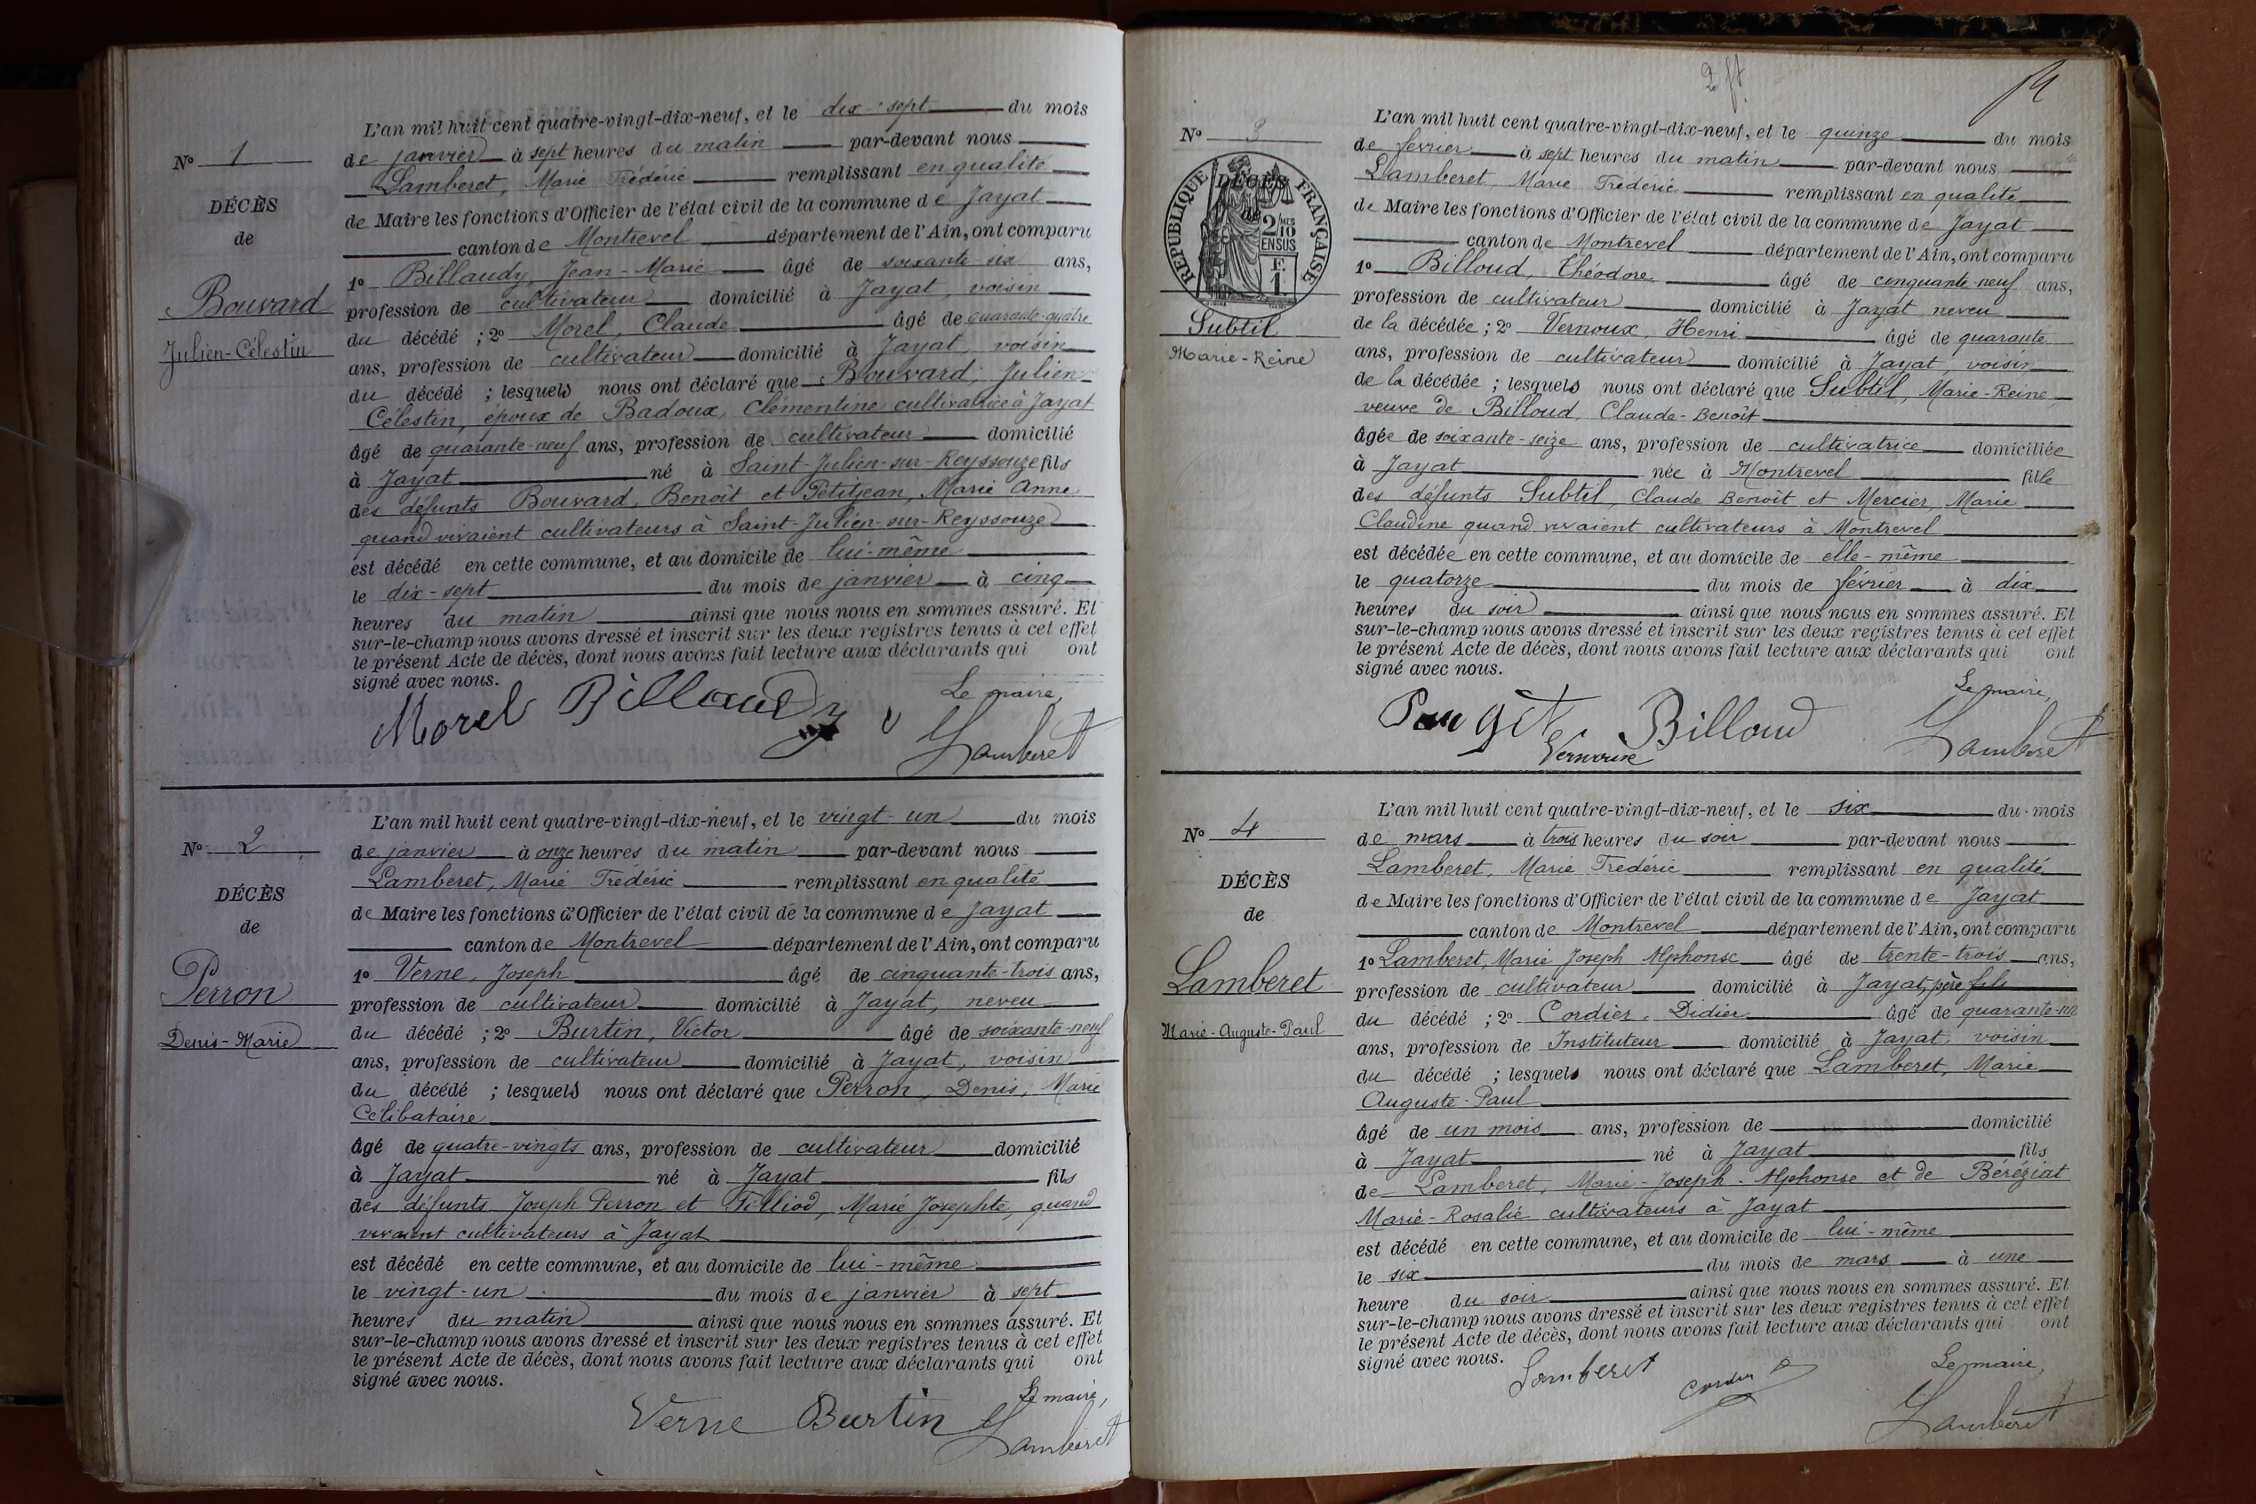 L'an mil huit cent quatre-vingt-dix-neuf, et le dix-sept du mois
No 1
de janvier à sept heures du matin par-devant nous
Lamberet, Marie Frédéric remplissant en qualité
DÉCÈS
de Maire les fonctions d'Officier de l'état civil de la commune de Jayat
de
canton de Montrevel département de l'Ain, ont comparu
1o Billaudy, Jean-Marie âgé de soixante-six ans,
Bouvard
profession de cultivateur domicilié à Jayat, voisin
Julien-Célestin
du décédé ; 2o Morel, Claude âgé de quarante-quatre
ans, profession de cultivateur domicilié à Jayat, voisin
du décédé ; lesquels nous ont déclaré que Bouvard, Julien
Célestin, époux de Badoux, Clémentine cultivatrice à Jayat
âgé de quarante-neuf ans, profession de cultivateur domicilié
à Jayat né à Saint-Julien-sur-Reyssouze fils
des défunts Bouvard, Benoît et Petitjean, Marie Anne
quand vivaient cultivateurs à Saint-Julien-sur-Reyssouze
est décédé en cette commune, et au domicile de lui-même
le dix-sept du mois de janvier à cinq
heures du matin ainsi que nous nous en sommes assuré. Et
sur-le-champ nous avons dressé et inscrit sur les deux registres tenus à cet effet
le présent Acte de décès, dont nous avons fait lecture aux déclarants qui ont
signé avec nous.
Le maire,
Morel Billaudy Lamberet
L'an mil huit cent quatre-vingt-dix-neuf, et le vingt-un du mois
No 2
de janvier à onze heures du matin par-devant nous
Lamberet, Marie Frédéric remplissant en qualité
DÉCÈS
de Maire les fonctions d'Officier de l'état civil de la commune de Jayat
de
canton de Montrevel département de l'Ain, ont comparu
1o Verne, Joseph âgé de cinquante-trois ans,
Perron
profession de cultivateur domicilié à Jayat, neveu
Denis-Marie
du décédé ; 2o Burtin, Victor âgé de soixante-neuf
ans, profession de cultivateur domicilié à Jayat, voisin
du décédé ; lesquels nous ont déclaré que Perron, Denis, Marie
Célibataire
âgé de quatre-vingts ans, profession de cultivateur domicilié
à Jayat né à Jayat fils
des défunts Joseph Perron et Tilliod, Marie Josephte, quand
vivaient cultivateurs à Jayat
est décédé en cette commune, et au domicile de lui-même
le vingt-un du mois de janvier à sept
heures du matin ainsi que nous nous en sommes assuré. Et
sur-le-champ nous avons dressé et inscrit sur les deux registres tenus à cet effet
le présent Acte de décès, dont nous avons fait lecture aux déclarants qui ont
signé avec nous.
Le maire,
Verne Burtin Lamberet
L'an mil huit cent quatre-vingt-dix-neuf, et le quinze du mois
No 3
de février à sept heures du matin par-devant nous
Lamberet, Marie Frédéric remplissant en qualité
DÉCÈS
RÉPUBLIQUE FRANÇAISE
2/10 MES EN SUS
F. 1
de Maire les fonctions d'Officier de l'état civil de la commune de Jayat
de
canton de Montrevel département de l'Ain, ont comparu
1o Billoud, Théodore âgé de cinquante-neuf ans,
profession de cultivateur domicilié à Jayat neveu
Subtil
de la décédée ; 2o Vernoux, Henri âgé de quarante
Marie-Reine
ans, profession de cultivateur domicilié à Jayat, voisin
de la décédée ; lesquels nous ont déclaré que Subtil, Marie-Reine
veuve de Billoud, Claude-Benoît
âgée de soixante-seize ans, profession de cultivatrice domiciliée
à Jayat née à Montrevel fille
des défunts Subtil, Claude Benoît et Mercier, Marie
Claudine quand vivaient cultivateurs à Montrevel
est décédée en cette commune, et au domicile de elle-même
le quatorze du mois de février à dix
heures du soir ainsi que nous nous en sommes assuré. Et
sur-le-champ nous avons dressé et inscrit sur les deux registres tenus à cet effet
le présent Acte de décès, dont nous avons fait lecture aux déclarants qui ont
signé avec nous.
Le maire,
Billoud Lamberet
Vernoux
L'an mil huit cent quatre-vingt-dix-neuf, et le six du mois
No 4
de mars à trois heures du soir par-devant nous
Lamberet, Marie Frédéric remplissant en qualité
DÉCÈS
de Maire les fonctions d'Officier de l'état civil de la commune de Jayat
de
canton de Montrevel département de l'Ain, ont comparu
1o Lamberet, Marie Joseph Alphonse âgé de trente-trois ans,
Lamberet
profession de cultivateur domicilié à Jayat, père
Marie-Auguste-Paul
du décédé ; 2o Cordier, Didier âgé de
ans, profession de Instituteur domicilié à Jayat, voisin
du décédé ; lesquels nous ont déclaré que Lamberet, Marie
Auguste-Paul
âgé de un mois ans, profession de domicilié
à Jayat né à Jayat fils
de Lamberet, Marie-Joseph-Alphonse et de Béréziat
Marie-Rosalie cultivateurs à Jayat
est décédé en cette commune, et au domicile de lui-même
le six du mois de mars à une
heure du soir ainsi que nous nous en sommes assuré. Et
sur-le-champ nous avons dressé et inscrit sur les deux registres tenus à cet effet
le présent Acte de décès, dont nous avons fait lecture aux déclarants qui ont
signé avec nous.
Le maire,
Lamberet Cordier Lamberet